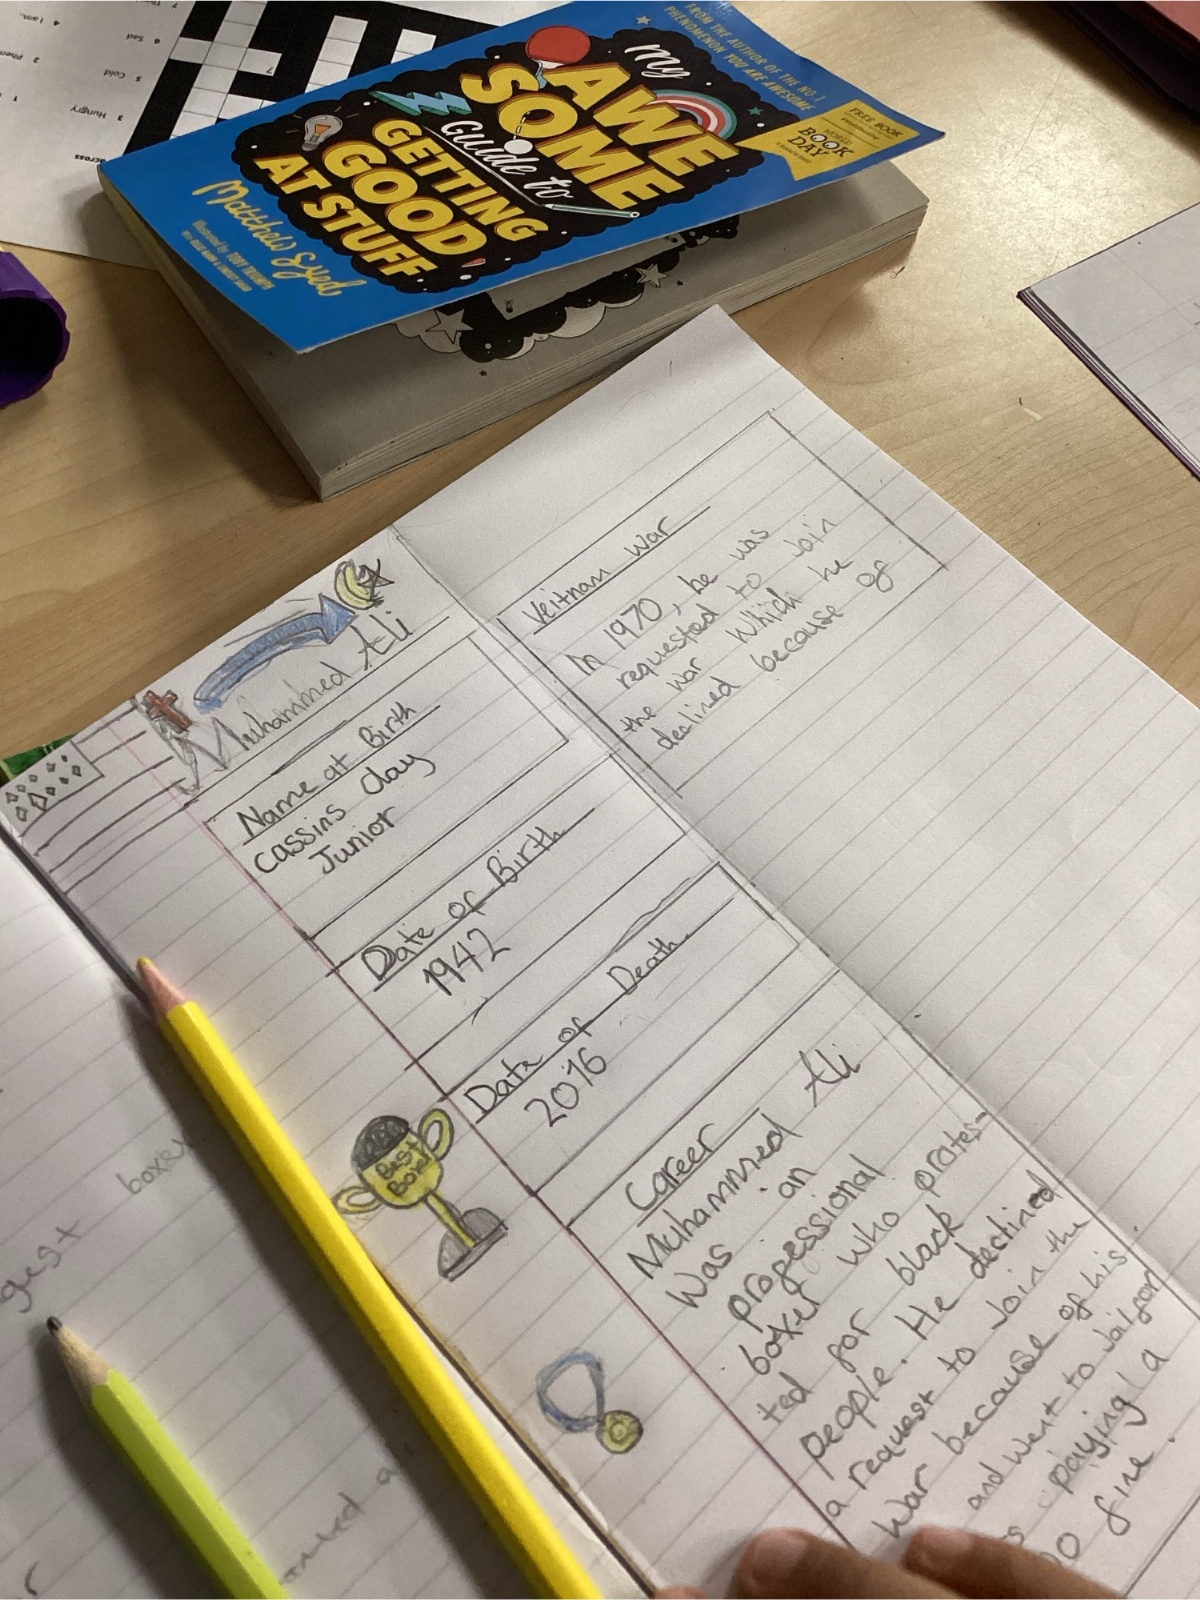 7
4 I am.
6 Sad
2
5 Cold
1
3 Hungry
7
FROM THE AUTHOR OF THE NO.1
PHENOMENON YOU ARE AWESOME
My
AWE
SOME
Guide to
GETTING
GOOD
AT STUFF
Matthew Syed
Illustrated by TOBY TRIUMPH
FREE BOOK
WORLD
BOOK
DAY
Muhammed Ali
Name at Birth
Cassins Clay
Junior
Date of Birth
1942
Date of Death
2016
Best
Boxer
Career
Muhammed Ali
Was an
professional
boxer who protes-
ted for black
people. He declined
a request to Join the
War because of his
and went to Jail for
paying a
fine.
Veitnam War
In 1970, he was
requested to Join
the war Which he
declined because of
boxer
gest